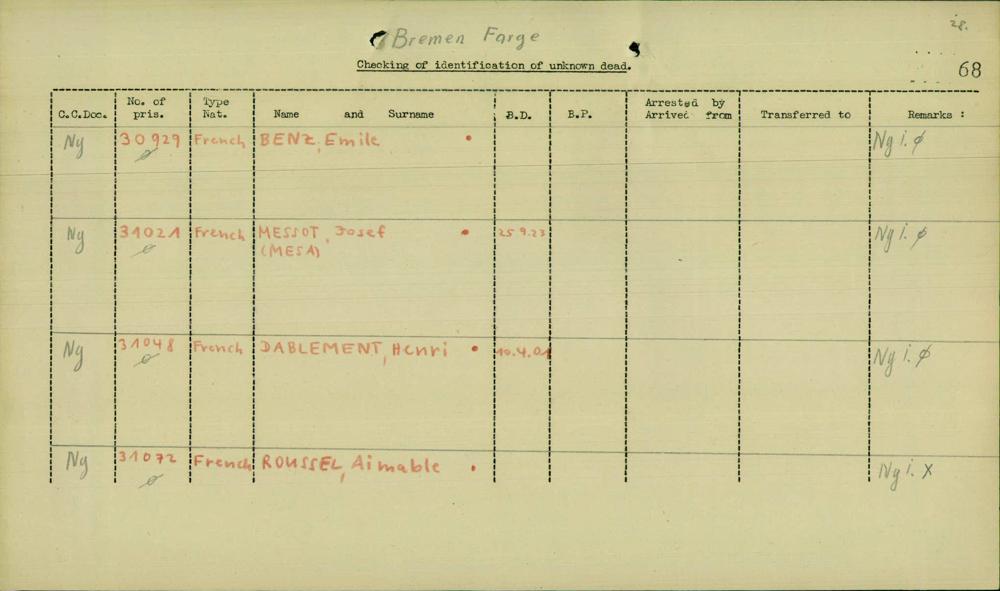 28.
Bremen Farge
Checking of identification of unknown dead.
68
C.C.Doc. No. of pris. Type Nat. Name and Surname B.D. B.P. Arrested by Arrived from Transferred to Remarks :
Ng 30929 French BENZ, Emile • Ng i. ϕ
ϕ
Ng 31021 French MESSOT, Josef • 25 9.23 Ng i. ϕ
ϕ (MESA)
Ng 31048 French DABLEMENT, Henri • 10.4.01 Ng i. ϕ
ϕ
Ng 31072 French ROUSSEL, Aimable • Ng i. X
ϕ